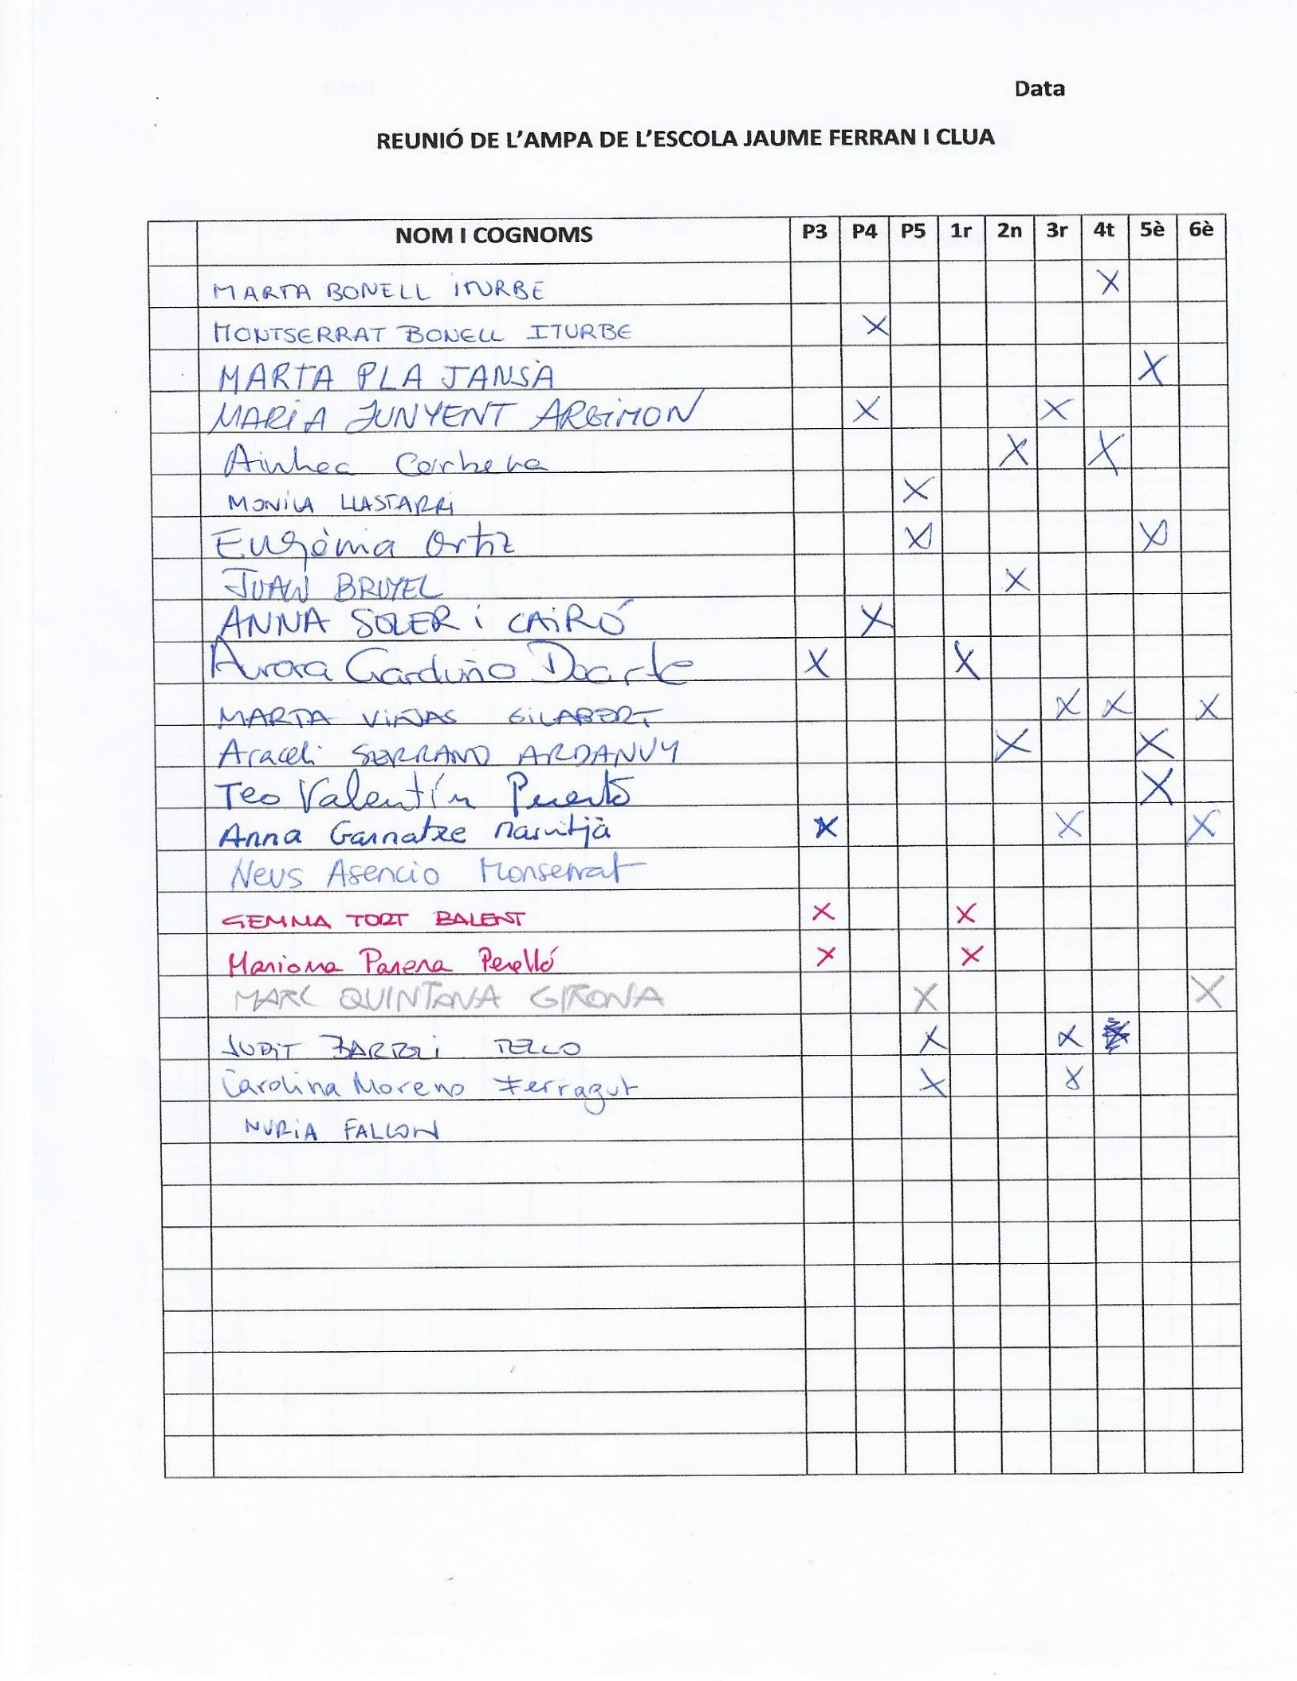 Data
REUNIÓ DE L'AMPA DE L'ESCOLA JAUME FERRAN I CLUA
NOM I COGNOMS P3 P4 P5 1r 2n 3r 4t 5è 6è
MARTA BONELL ITURBE X
MONTSERRAT BONELL ITURBE X
MARTA PLA JANSÀ X
MARIA JUNYENT ARGIMON X X
Ainhoa Corbera X X
MONICA LLASTARRI X
Eugènia Ortiz X X
JUAN BRUYEL X
ANNA SOLER i CAIRÓ X
Aurora Garduño Duarte X X
MARTA VIÑAS GILABERT X X X
Araceli SERRANO ARDANUY X X
Teo Valentín Puerto X
Anna Garnatxe Masitjà X X X
Neus Asencio Monserrat
GEMMA TORT BALENT X X
Mariona Parera Perelló X X
MARC QUINTANA GIRONA X X
JUDIT BARRRI TELLO X X
Carolina Moreno Ferragut X X
NURIA FALLON